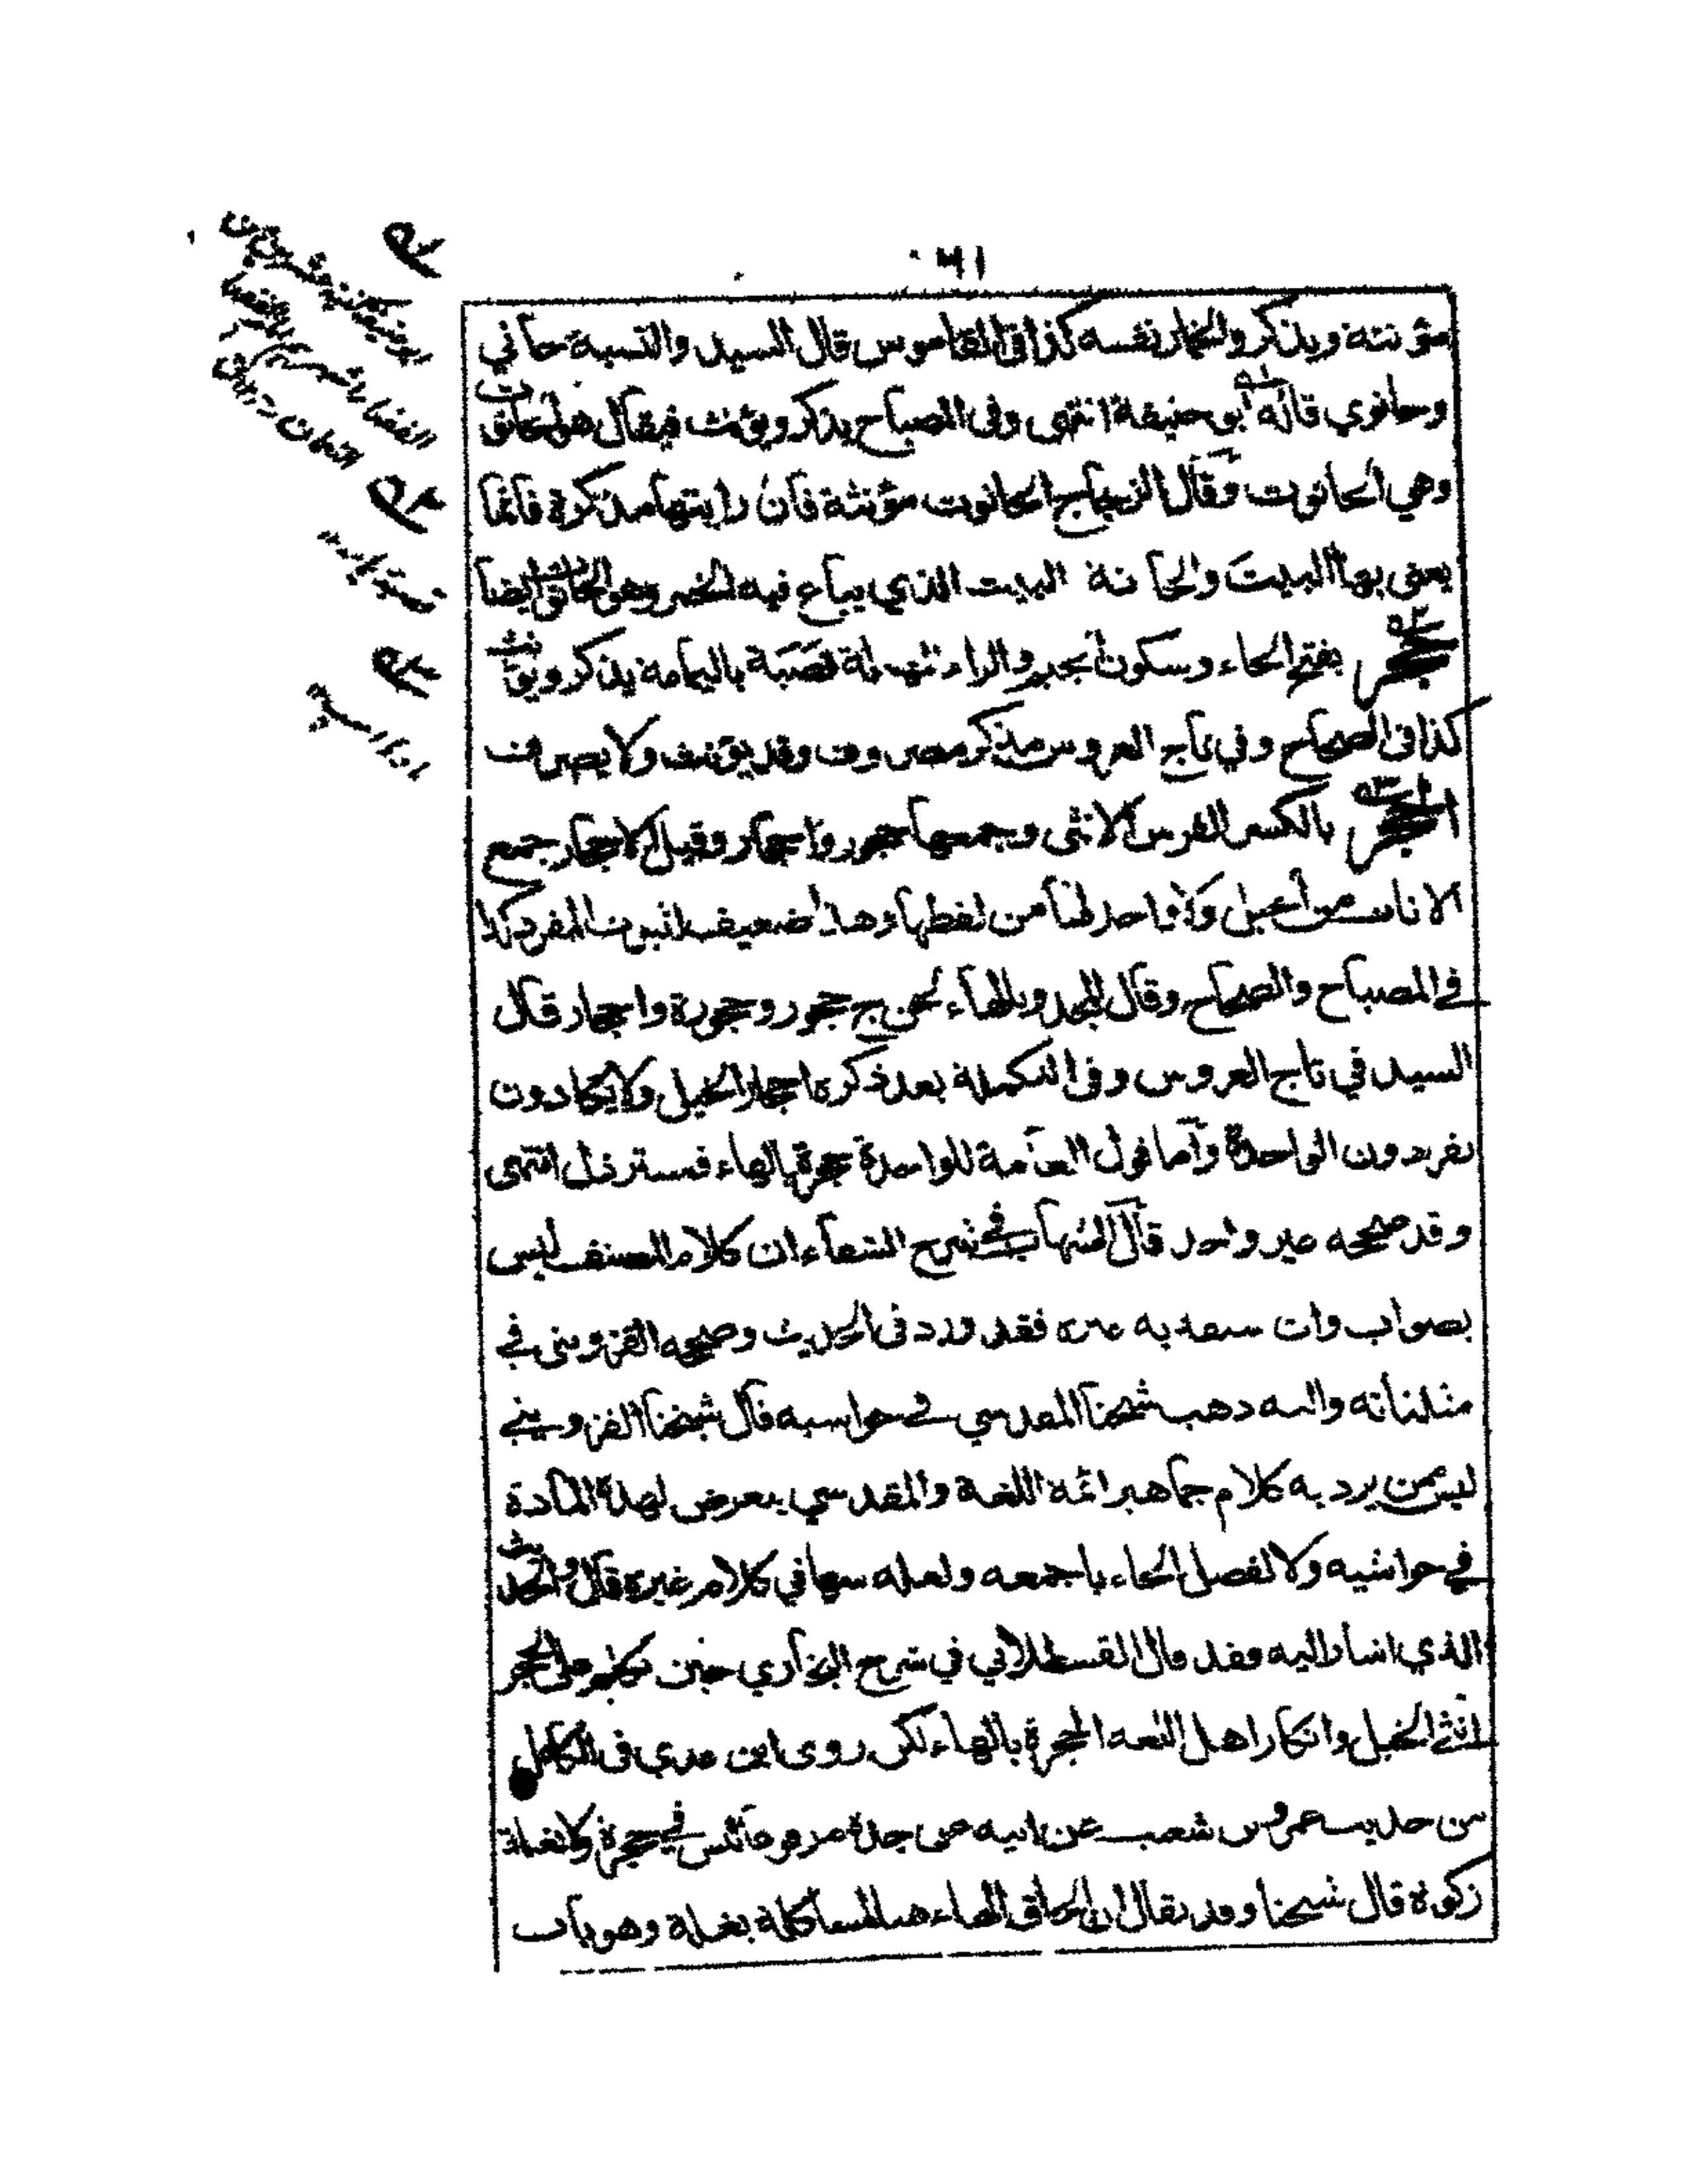 ٦١
مؤنثة ويذكر والخمار نفسه كذا في القاموس قال السيد والنسبة حاني
وحانوي قاله ابو حنيفة انتهى وفي المصباح يذكر ويؤنث فيقال هو الحانوت
وهي الحانوت وقال الزجاج الحانوت مؤنثة فان رايتها مذكرة فانما
يعنى بها البيت والحانة البيت الذي يباع فيه الخمر وهو الحانوت ايضا
حجر بفتح الحاء وسكون الجيم والراء المهملة قصبة باليمامة يذكر ويؤنث
كذا في الصحاح وفي تاج العروس مذكر مصروف وقد يؤنث ولا يصرف
الحجر بالكسر الفرس الانثى وجمعها حجور واحجار وقيل الاحجار جمع
الاناث من الخيل ولا واحد لها من لفظها وهذا ضعيف لثبوت المفرد كذا
في المصباح والصحاح وقال المجد وبالهاء لحن ج حجور وحجورة واحجار قال
السيد في تاج العروس وفي التكملة بعد ذكره احجار الخيل ولا يكادون
يفردون الواحدة واما قول العامة للواحدة حجرة بالهاء فمسترذل انتهى
وقد صححه غير واحد قال الشهاب في شرح الشفاء ان كلام المصنف ليس
بصواب وان سبقه به غيره فقد ورد في الحديث وصححه القزويني في
مثلثاته واليه ذهب شيخنا المقدسي في حواشيه قال شيخنا القزويني
ليس ممن يرد به كلام جماهير ائمة اللغة والمقدسي يتعرض لهذه المادة
في حواشيه ولا لفصل الحاء باجمعه ولعله سها في كلام غيره قال والحديث
الذي اشار اليه فقد قال القسطلاني في شرح البخاري حين تكلم على الحجر
انثى الخيل وانكار اهل اللغة الحجرة بالهاء لكن روى ابن عدي في الكامل
من حديث عمرو بن شعيب عن ابيه عن جده مرفوعا ليس في حجرة ولا بغلة
زكوة قال شيخنا وقد يقال ان الحاق الهاء هنا لمشاكلة بغلة وهو باب